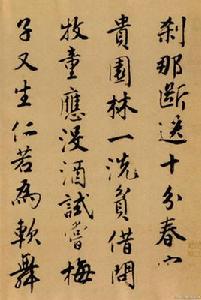 刹那斷送十分春富
貴園林一洗貧借問
牧童應沒酒試嘗梅
子又生仁若為軟舞